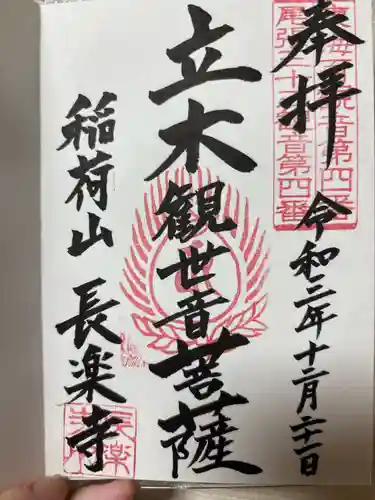 奉拝
令和二年十二月二十一日
立木観世音菩薩
稲荷山 長楽寺
尾張三十三観音第四番
長楽